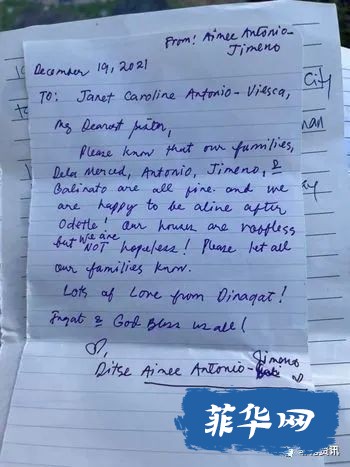 From: Aimee Antonio-
Jimeno
December 19, 2021
TO: Janet Caroline Antonio-Viesca,
My Dearest
Please know that our families,
Dela Merced, Antonio, Jimeno, &
Galinato are all fine and we
are happy to be alive after
Odette! Our houses are roofless
but we are NOT hopeless! Please let all
our families know.
Lots of Love from Dinagat!
Ingat & God Bless us all!
Ditse Aimee Antonio-Jimeno
City
菲华网
资讯